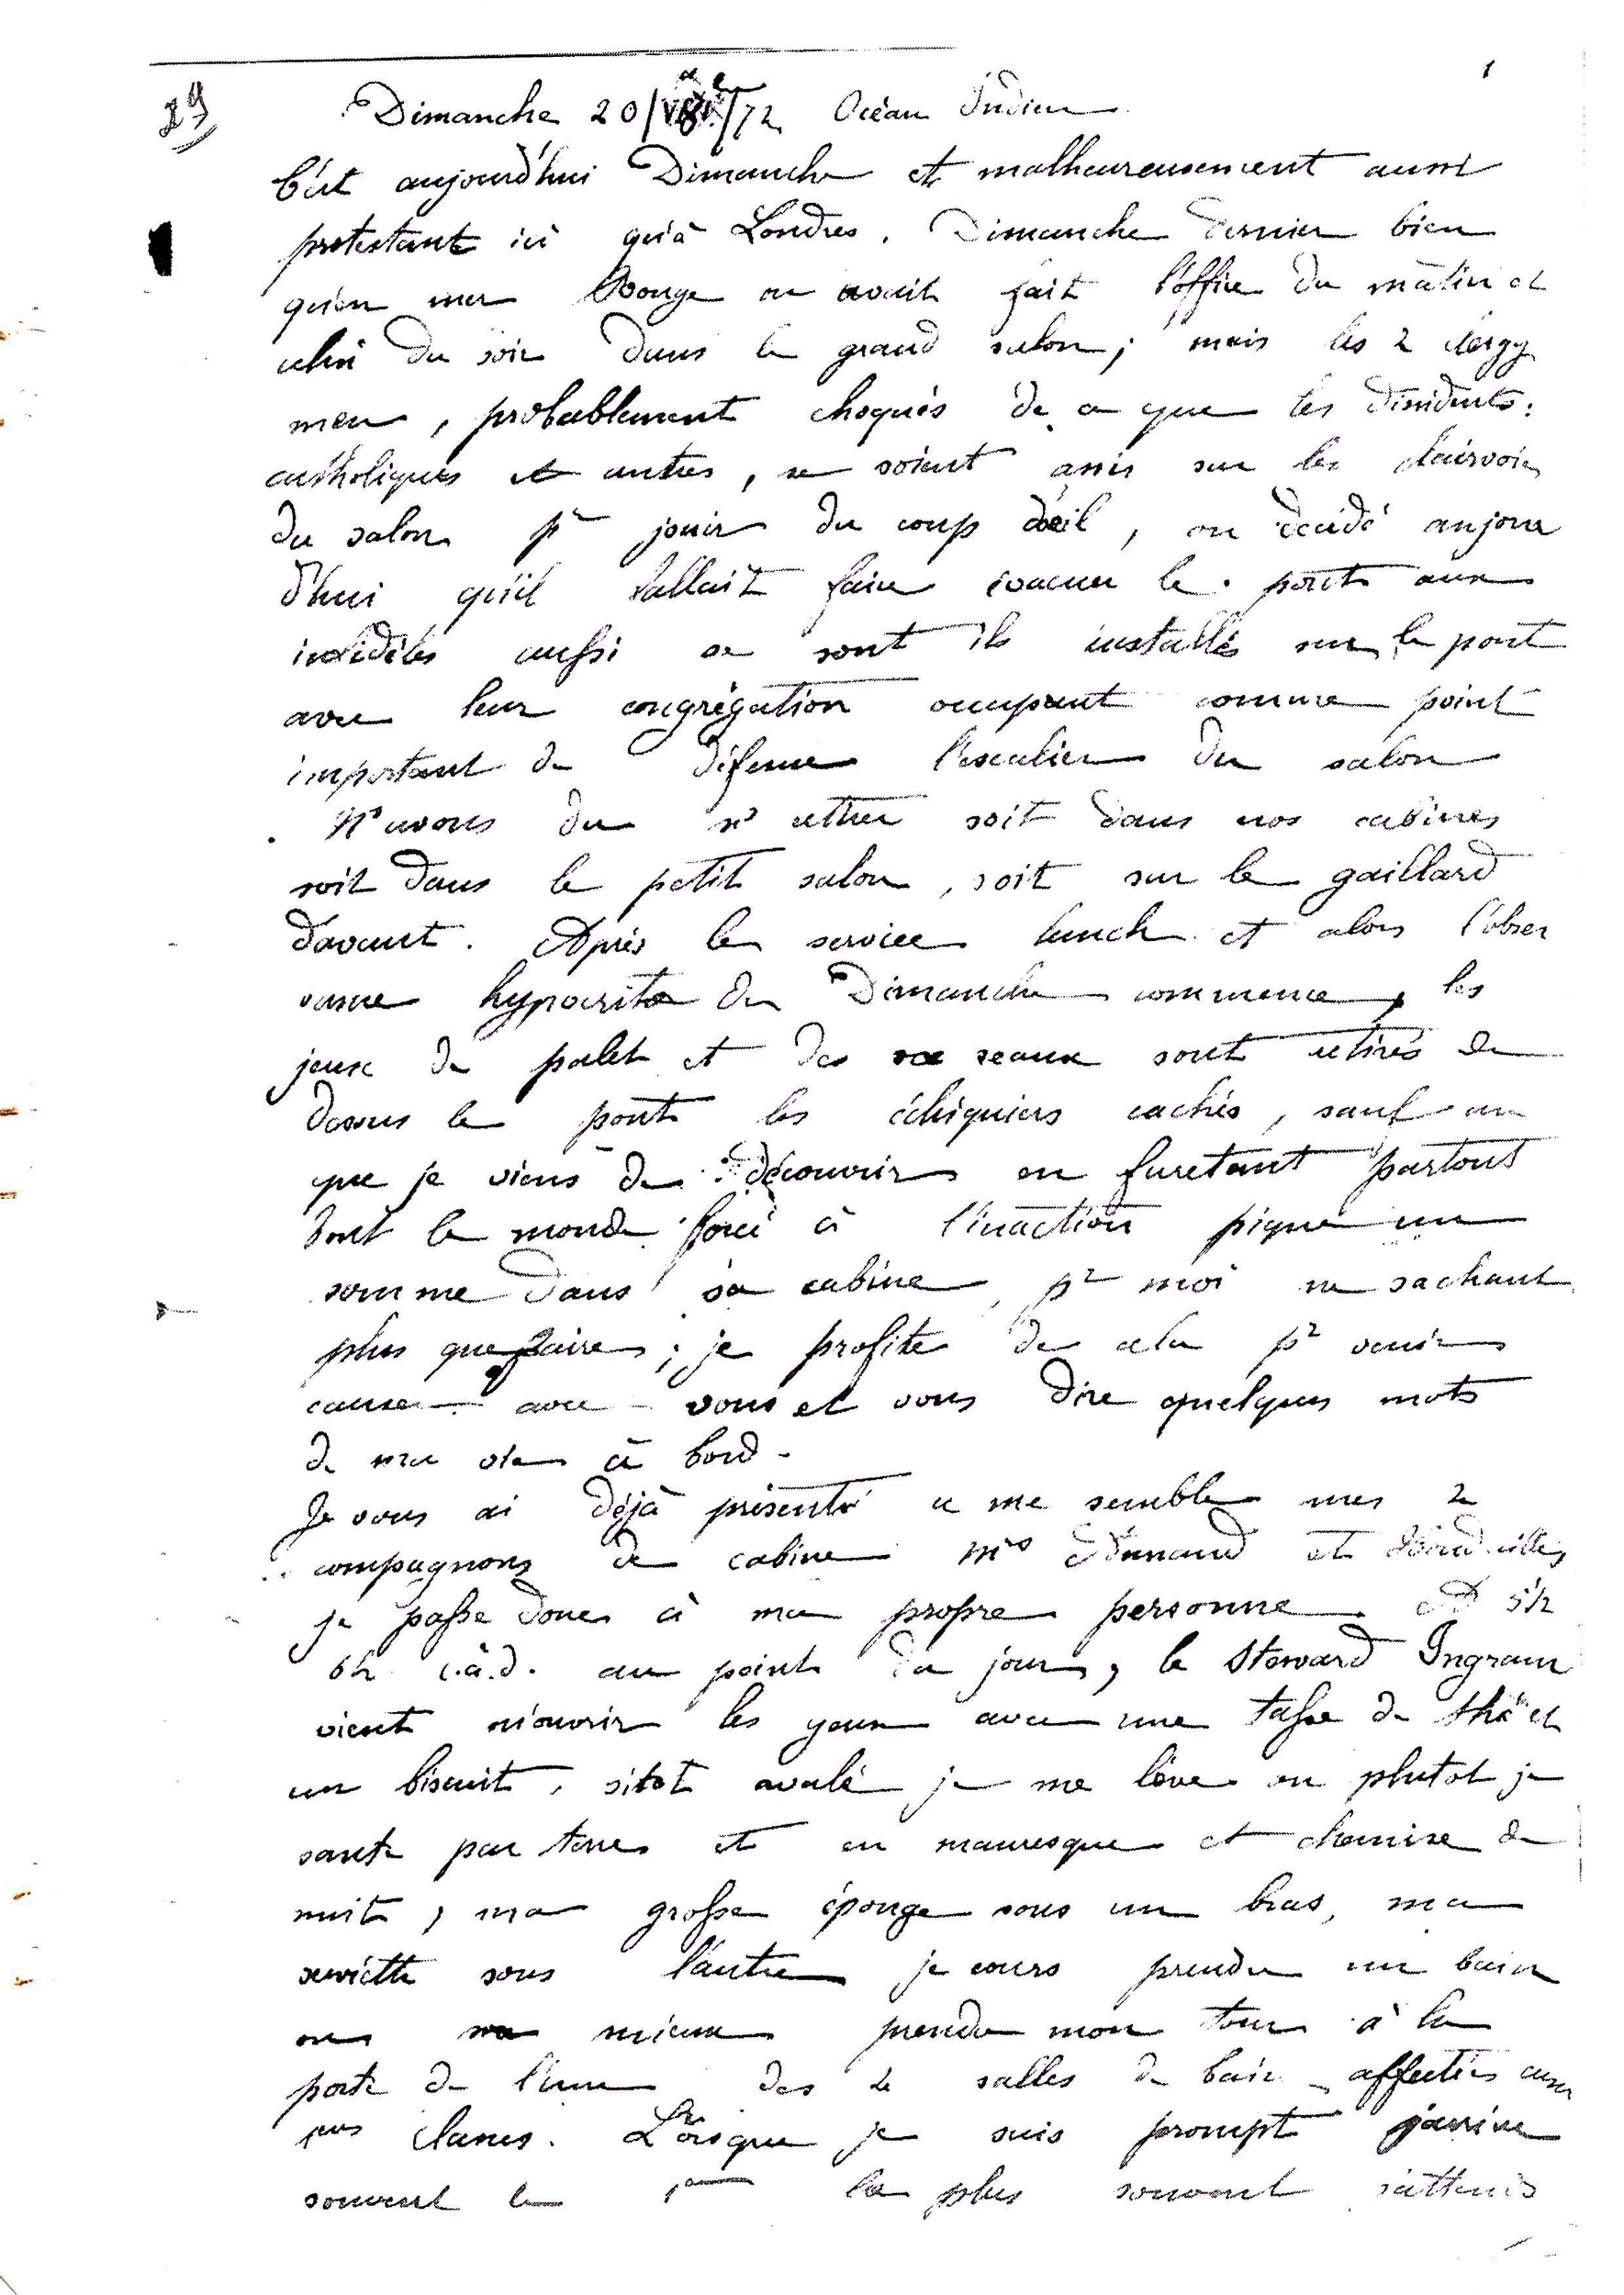 1
29
Dimanche 20/8/72 Océan Indien
C'est aujourd'hui Dimanche et malheureusement aussi
protestant ici qu'à Londres. Dimanche dernier bien
qu'en mer Rouge on avait fait l'office du matin et
celui du soir dans le grand salon; mais les 2 clergy
men, probablement choqués de ce que les dissidents:
catholiques et autres, se soient assis sur les clairvoies
du salon pr jouir du coup d'œil, on décidé aujour
d'hui qu'il fallait faire évacuer le pont aux
infidèles aussi se sont ils installés sur le pont
avec leur congrégation occupant comme point
important de défense l'escalier du salon
Ns avons du ns retirer soit dans nos cabines
soit dans le petit salon, soit sur le gaillard
d'avant. Après le service lunch et alors l'obser
vance hypocrite du Dimanche commence, les
jeux de palet et des seaux sont retirés de
dessus le pont les échiquiers cachés, sauf un
que je viens de découvrir en furetant partout
tout le monde forcé à l'inaction pique un
somme dans sa cabine, pr moi ne sachant
plus que faire; je profite de cela pr venir
causer avec vous et vous dire quelques mots
de ma vie à bord -
Je vous ai déjà présenté ce me semble mes 2
compagnons de cabine Mrs et
je passe donc à ma propre personne. A 5h
6h c.à.d. au point du jour, le Steward Ingram
vient m'ouvrir les yeux avec une tasse de thé et
un biscuit, sitot avalé je me lève ou plutot je
saute par terre et en mauresque et chemise de
nuit, ma grosse éponge sous un bras, ma
serviette sous l'autre je cours prendre un bain
ou mieux prendre mon tour à la
porte de l'une des 2 salles de bain affectées aux
1eres classes. Lorsque je suis prompt j'arrive
souvent le 1er le plus souvent j'attends